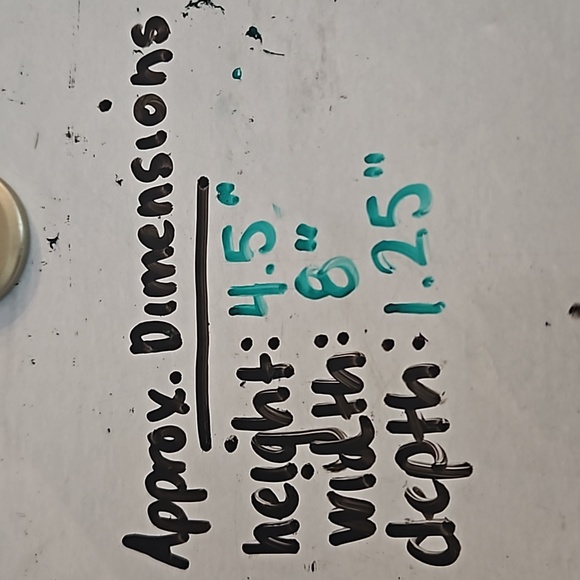 Approx. Dimensions
height: 4.5"
width: 8"
depth: 1.25"